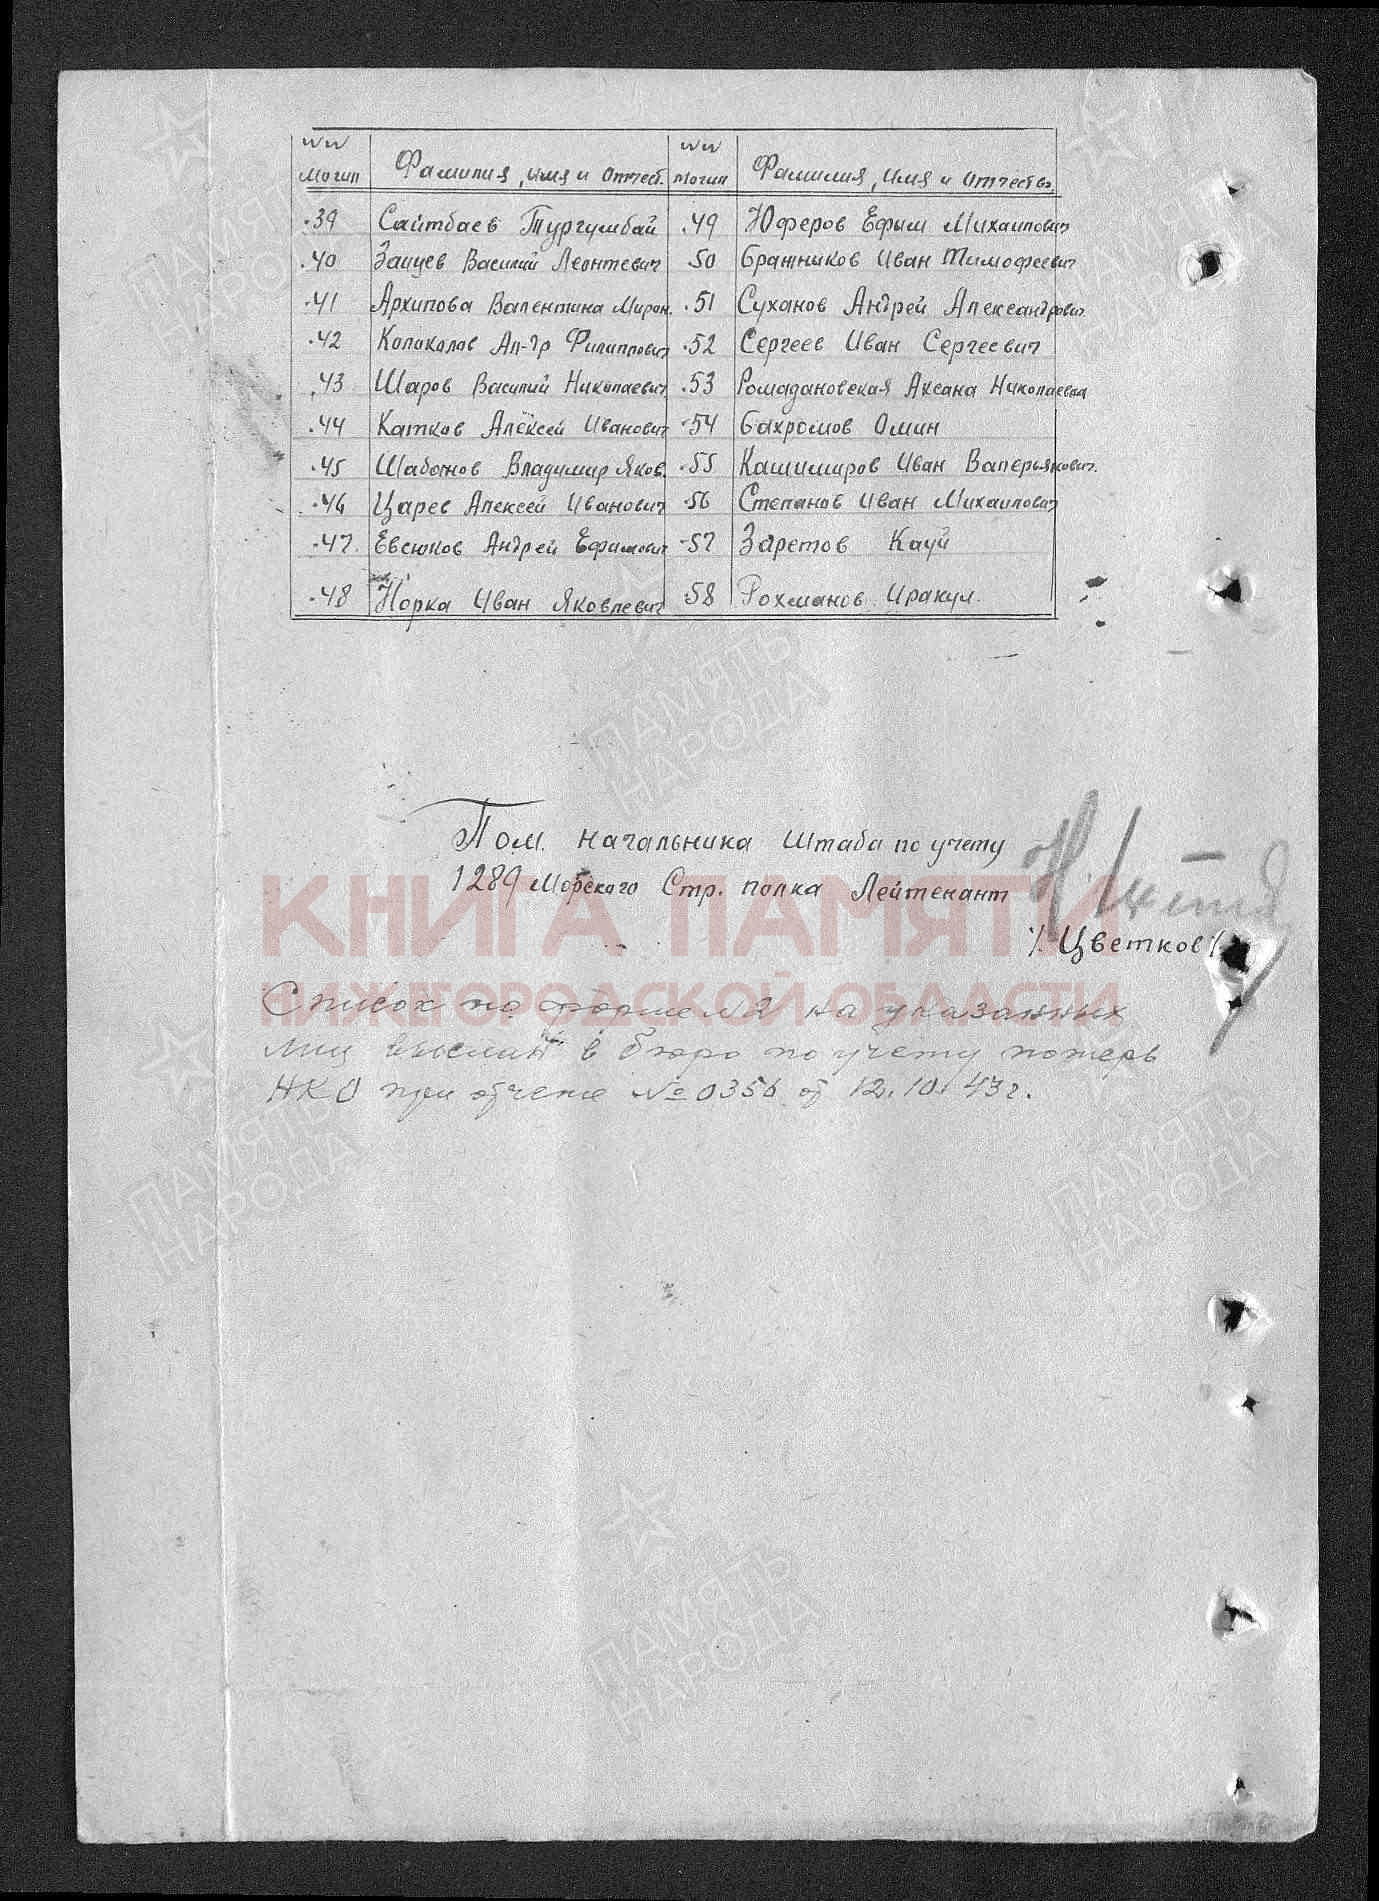 №№ могил | Фамилия, имя и отчест. | №№ могил | Фамилия, имя и отчество.
39 | Сайтбаев Тургумбай | 49 | Юферов Ефим Михайлович
40 | Зайцев Василий Леонтевич | 50 | Бражников Иван Тимофеевич
41 | Архипова Валентина Мирон. | 51 | Суханов Андрей Александрович
42 | Колоколов Ал-др Филиппович | 52 | Сергеев Иван Сергеевич
43 | Шаров Василий Николаевич | 53 | Ромадановская Аксана Николаевна
44 | Катков Алексей Иванович | 54 | Бахромов Омин
45 | Шабонов Владимир Яков. | 55 | Кашимиров Иван Валерьянович.
46 | Царев Алексей Иванович | 56 | Степанов Иван Михайлович
47 | Евсюков Андрей Ефимович | 57 | Заретов Кауй
48 | Норка Иван Яковлевич | 58 | Рохманов Иракул.
Пом. начальника штаба по учету
1289 Морского Стр. полка Лейтенант
/. Цветков /
Список по форме №2 на указанных
лиц выслан в бюро по учету потерь
НКО при отчете № 0356 от 12.10.43г.
КНИГА ПАМЯТИ
НИЖЕГОРОДСКОЙ ОБЛАСТИ
ПАМЯТЬ
НАРОДА